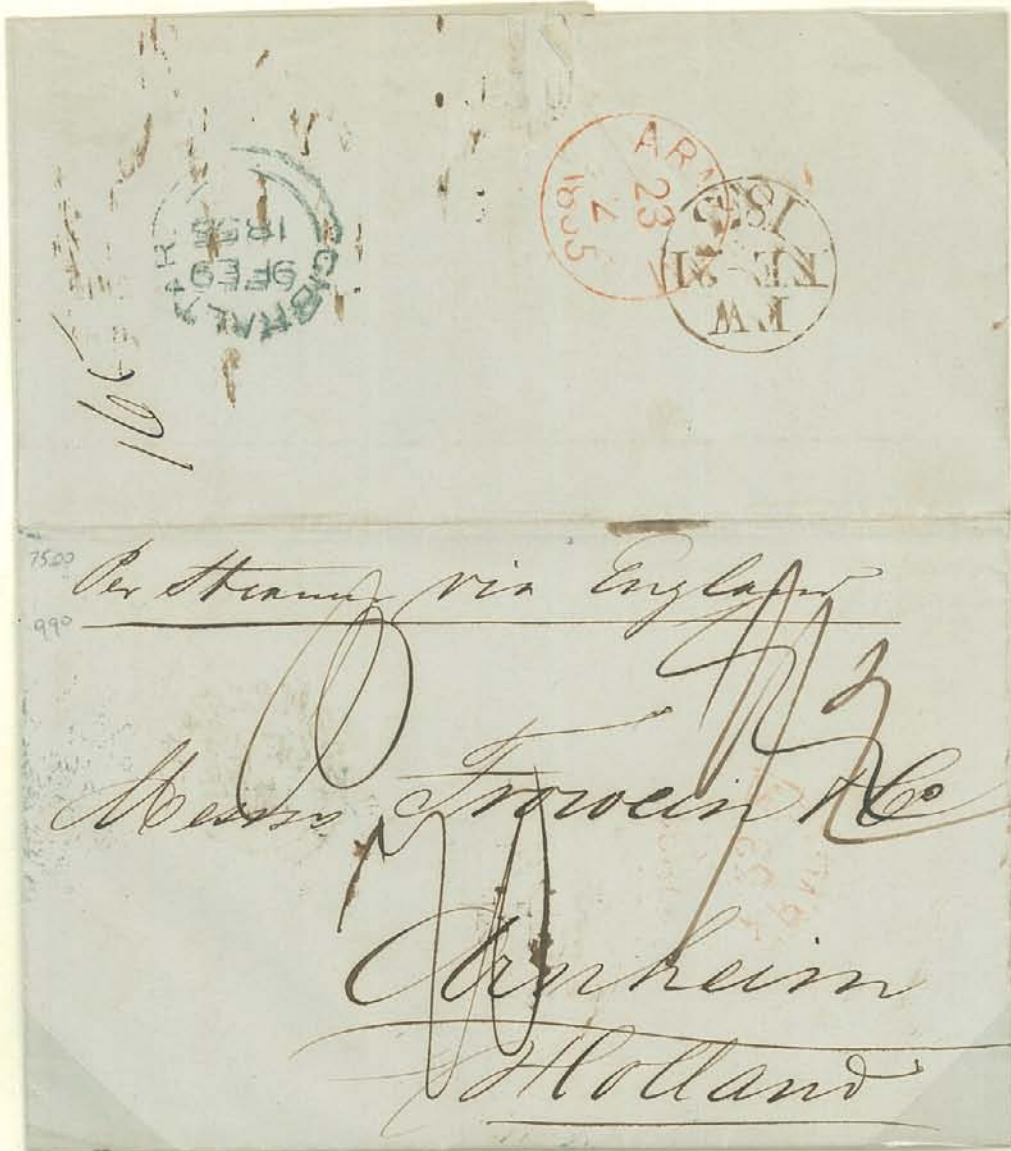 GIBRALTAR
9 FE 9
1855
ARNHEM
23
2
1855
FE-21
1855
166
7500
990
Per Steamer via England
Messrs Frowein & Co
Arnheim
Holland